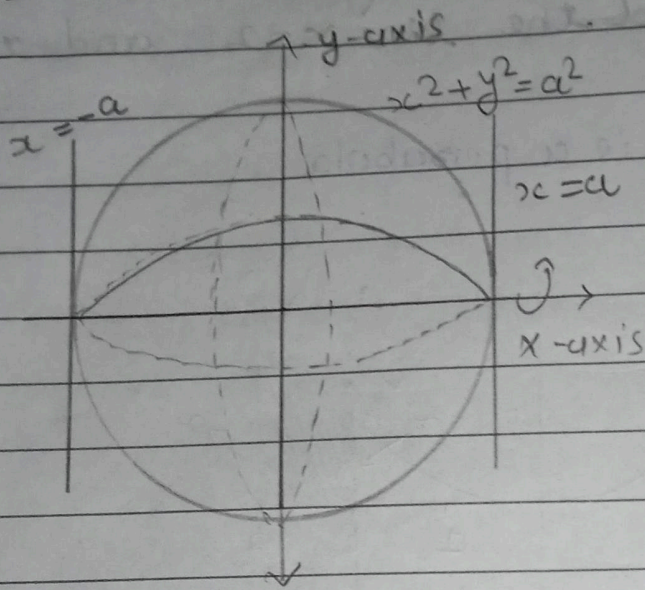 y-axis
x² + y² = a²
x = -a
x = a
x-axis